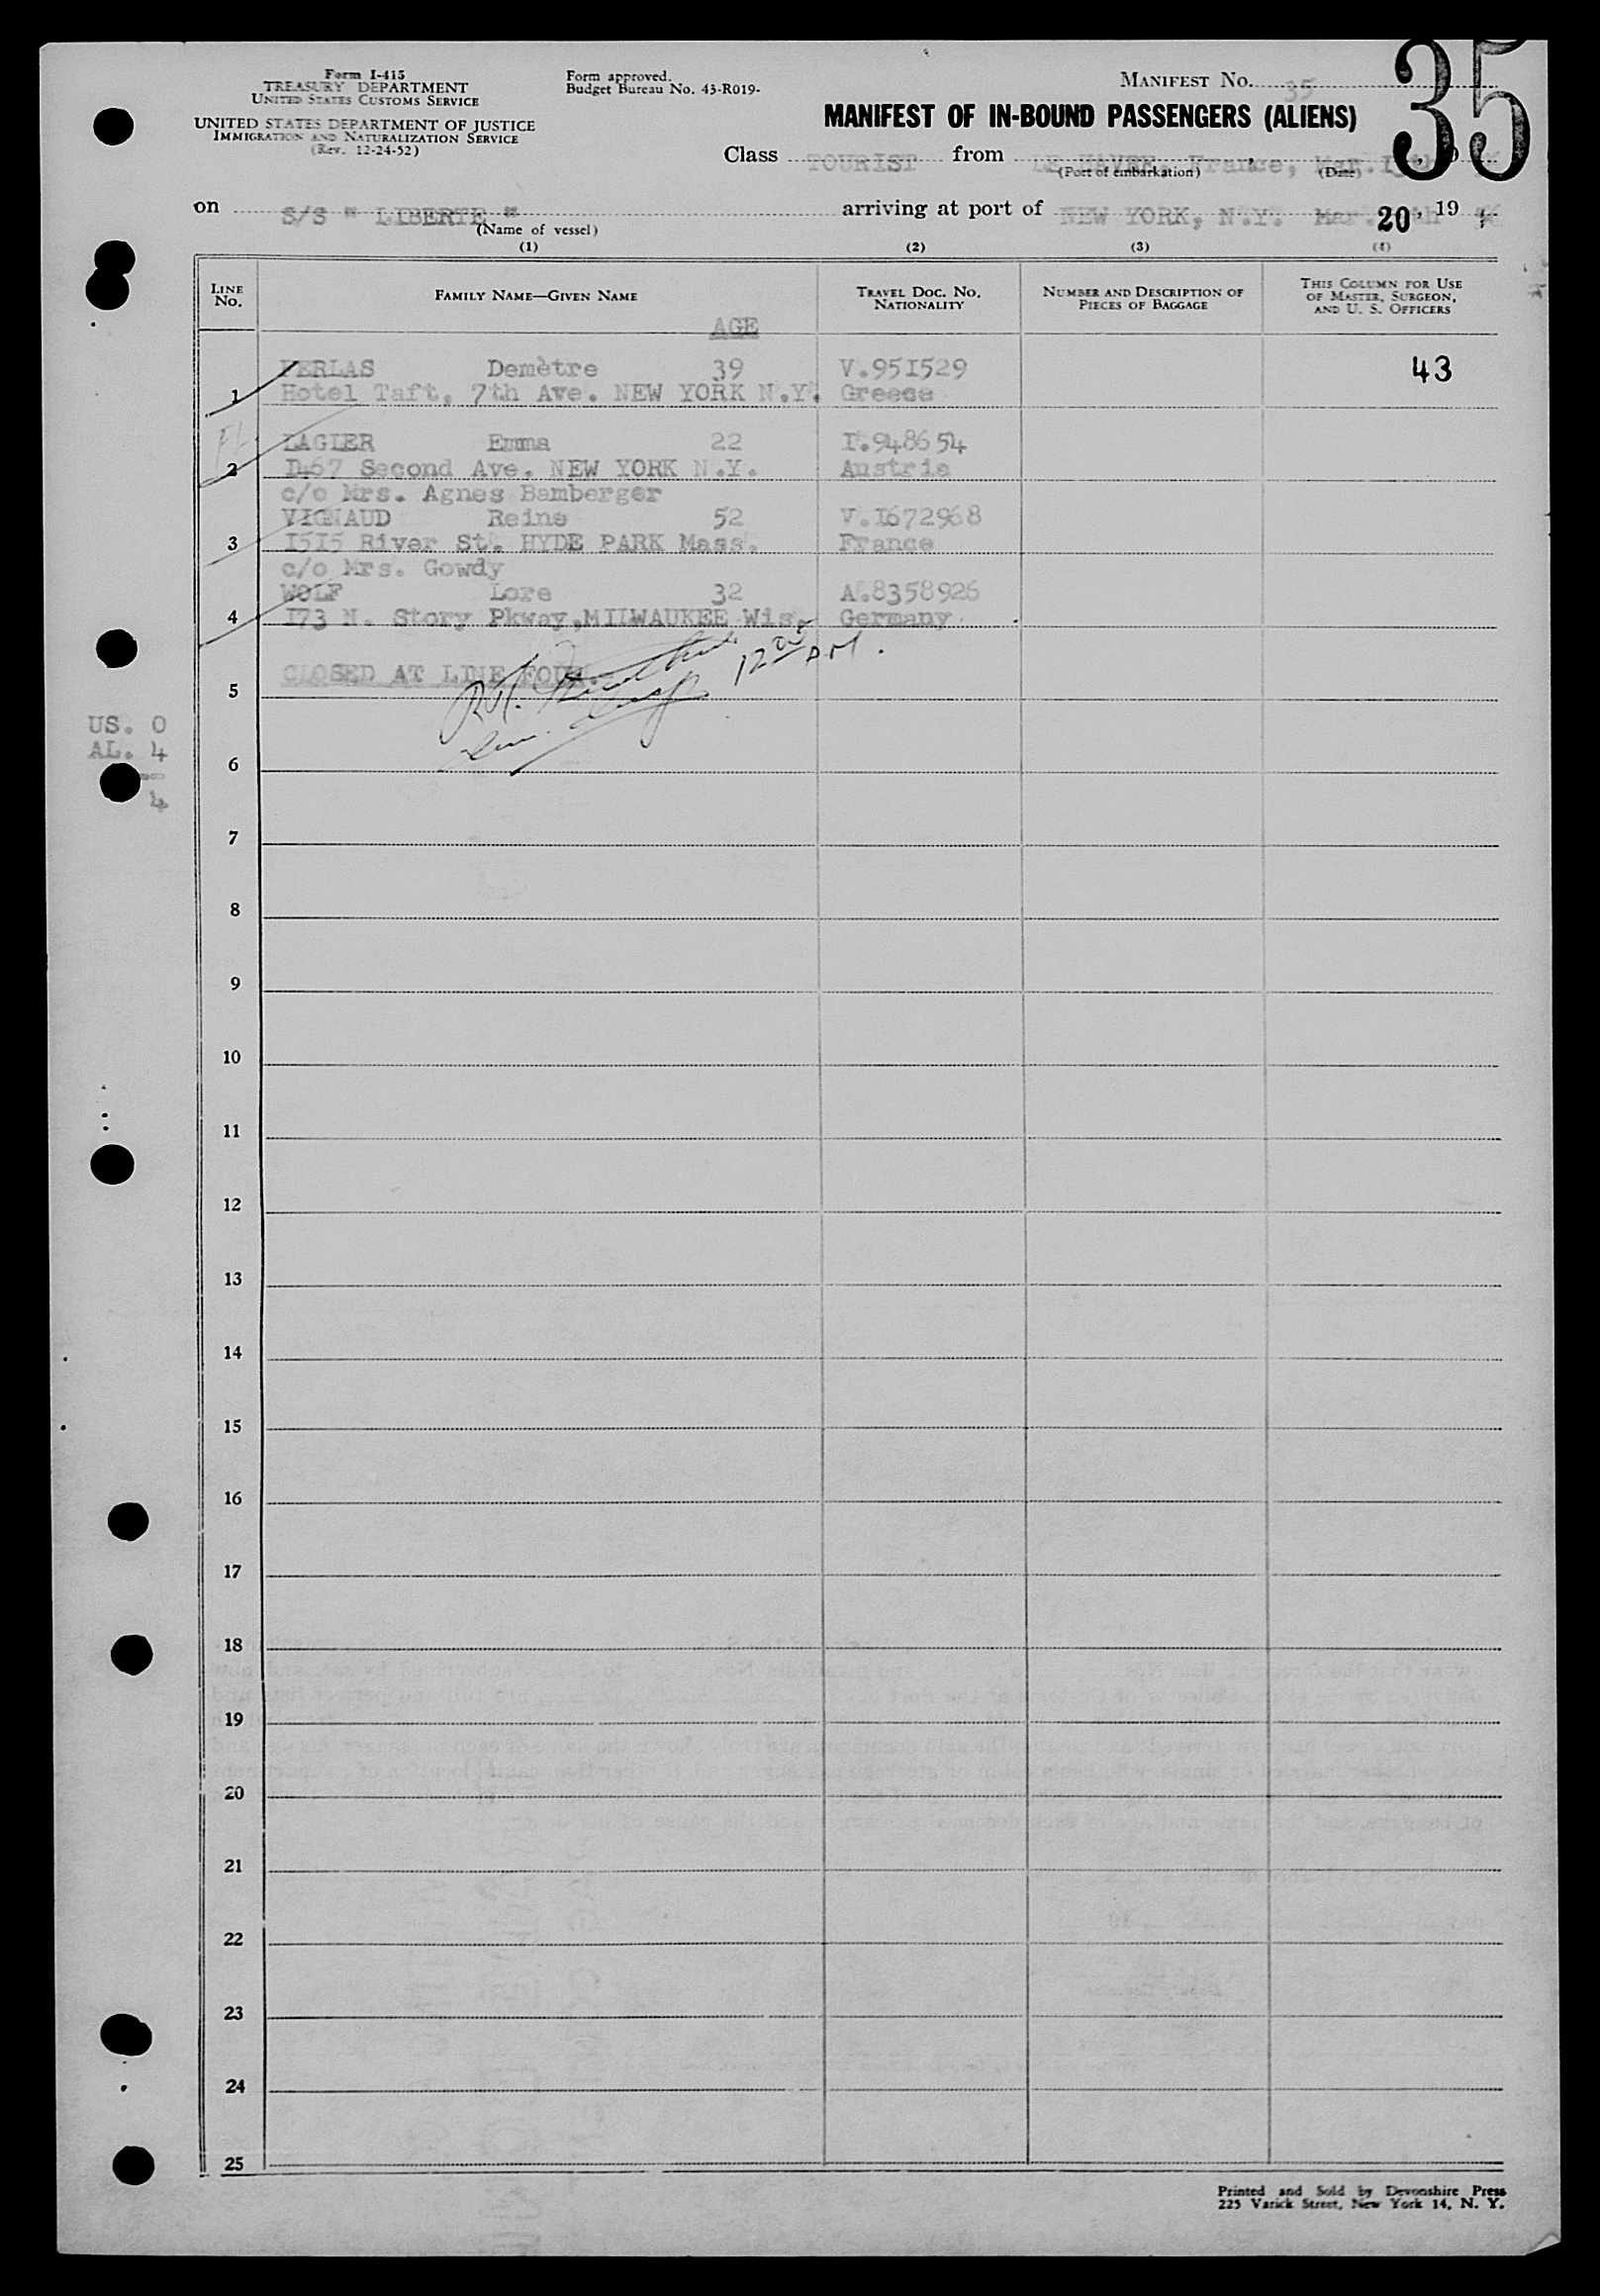 35
Form I-415
TREASURY DEPARTMENT
UNITED STATES CUSTOMS SERVICE
UNITED STATES DEPARTMENT OF JUSTICE
IMMIGRATION AND NATURALIZATION SERVICE
(Rev. 12-24-52)
Form approved.
Budget Bureau No. 43-R019-
MANIFEST NO. 35
MANIFEST OF IN-BOUND PASSENGERS (ALIENS)
Class TOURIST from LE HAVRE, France, Mar.
(Port of embarkation) (Date)
on S/S " LIBERTE " arriving at port of NEW YORK, N.Y. Mar. 20, 19
(Name of vessel)
(1) (2) (3) (4)
LINE No. FAMILY NAME—GIVEN NAME TRAVEL DOC. NO. NATIONALITY NUMBER AND DESCRIPTION OF PIECES OF BAGGAGE THIS COLUMN FOR USE OF MASTER, SURGEON, AND U. S. OFFICERS
AGE
Demètre 39 V.951529 43
1 Hotel Taft, 7th Ave. NEW YORK N.Y. Greece
LAGLER Emma 22 I.948654
2 I467 Second Ave. NEW YORK N.Y. Austria
c/o Mrs. Agnes Bamberger
VIGNAUD Reine 52 V.I672968
3 I5I5 River St. HYDE PARK Mass. France
c/o Mrs. Gowdy
WOLF Lore 32 A.8358926
4 I73 N. Story Pkway,MILWAUKEE Wis. Germany
12 PM.
CLOSED AT LINE FOUR.
5
US. 0
AL. 4
6
4
7
8
9
10
11
12
13
14
15
16
17
18
19
20
21
22
23
24
25
Printed and Sold by Devonshire Press
225 Varick Street, New York 14, N. Y.